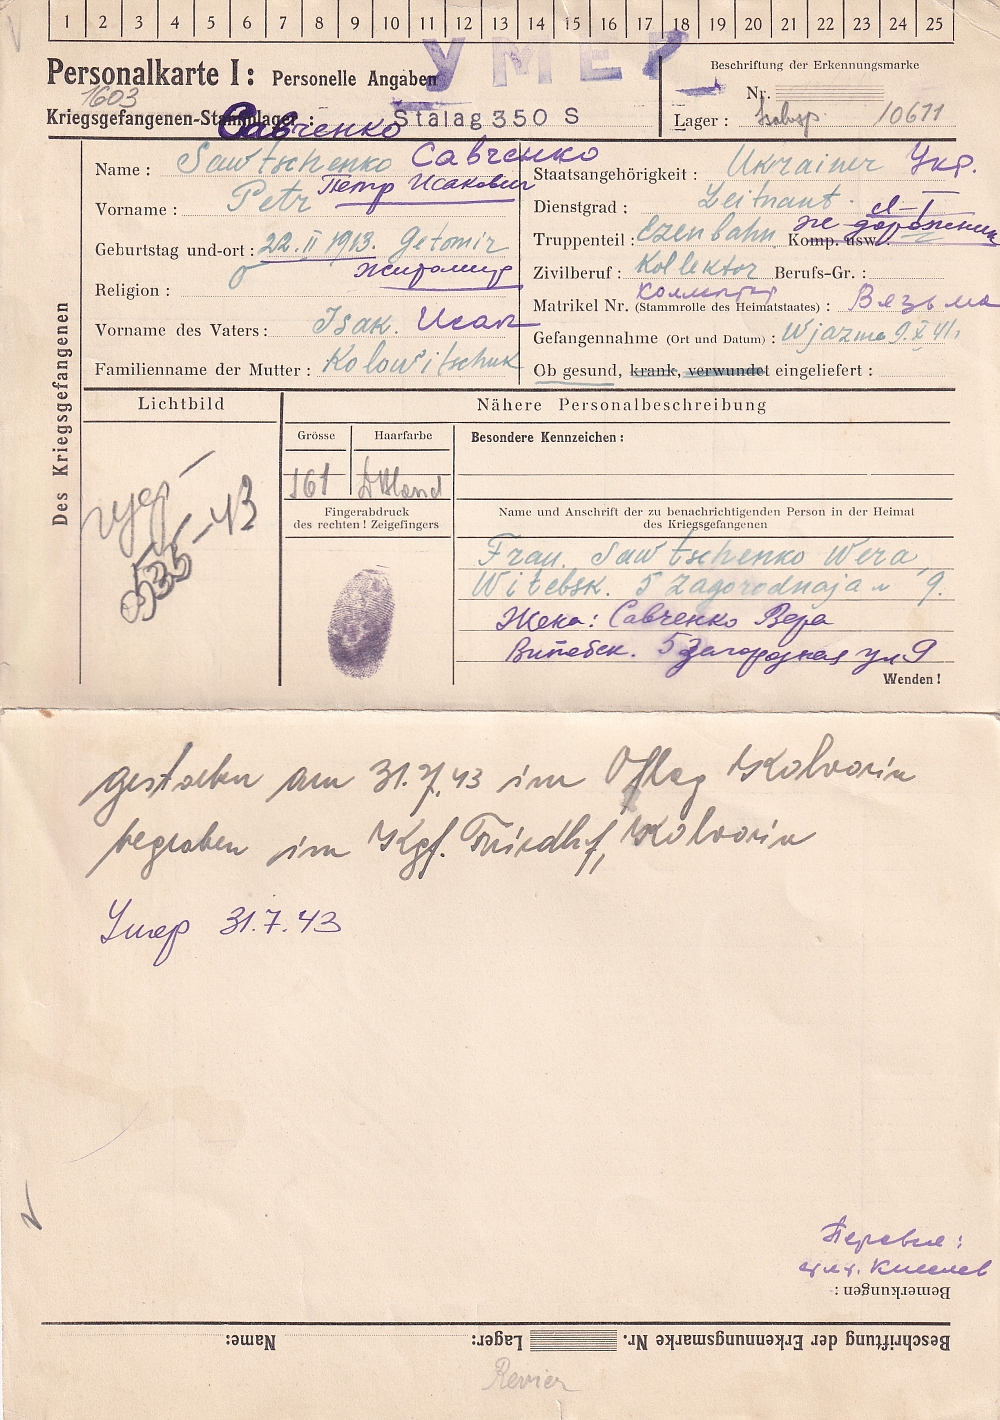 1 2 3 4 5 6 7 8 9 10 11 12 13 14 15 16 17 18 19 20 21 22 23 24 25
УМЕР
Personalkarte I: Personelle Angaben
Beschriftung der Erkennungsmarke
Nr.
1603
Kriegsgefangenen-Stammlager: Stalag 350 S
Lager: 10671
Савченко
Name: Sawtschenko Савченко
Staatsangehörigkeit: Ukrainer Укр.
Vorname: Petr Петр Исакович
Dienstgrad: Leitnant Л-т
Truppenteil: Ezenbahn Komp. usw.: же дорожник
Geburtstag und -ort: 22.II 1913. Getomir
Житомир
Zivilberuf: Kollektor Berufs-Gr.:
Religion:
Matrikel Nr. (Stammrolle des Heimatstaates): Вязьма
Vorname des Vaters: Isak. Исак
Gefangennahme (Ort und Datum): Wjazma 9.X 41.
Familienname der Mutter: Kolowitschuk
Ob gesund, krank, verwundet eingeliefert:
Des Kriegsgefangenen
Lichtbild
Nähere Personalbeschreibung
Grösse Haarfarbe Besondere Kennzeichen:
161 D Blond
Fingerabdruck
des rechten! Zeigefingers
Name und Anschrift der zu benachrichtigenden Person in der Heimat
des Kriegsgefangenen
Frau. Sawtschenko Wera
Witebsk. 5 Zagorodnaja 9.
Жена: Савченко Вера
Витебск. 5 Загородная ул 9
Wenden!
gestorben am 31.7.43 im Oflag Kalvaria
begraben im Kgf. Friedhof, Kalvaria
Умер 31.7.43
Перевел:
Киселев
Bemerkungen:
Beschriftung der Erkennungsmarke Nr. Lager: Name:
Revier